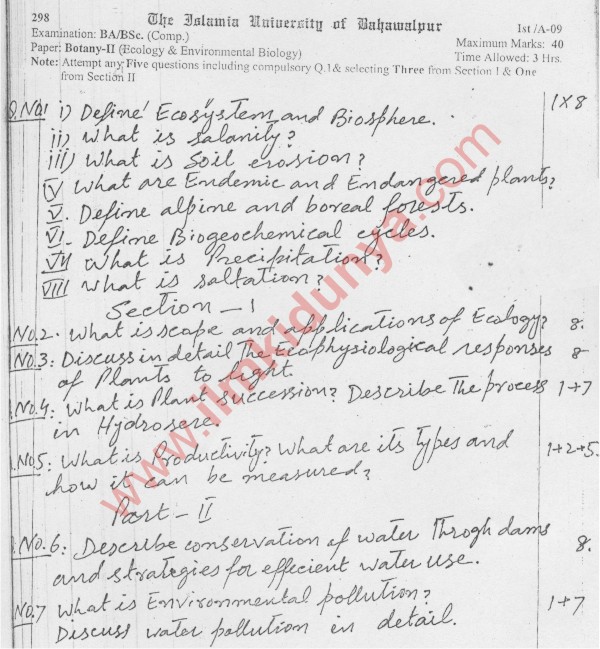 298
The Islamia University of Bahawalpur
1st /A-09
Examination: BA/BSc. (Comp.)
Maximum Marks: 40
Paper: Botany-II (Ecology & Environmental Biology)
Time Allowed: 3 Hrs.
Note: Attempt any Five questions including compulsory Q.1& selecting Three from Section I & One
from Section II
Q.No1 i) Define Ecosystem and Biosphere. 1x8
ii) What is salanity?
iii) What is Soil erosion?
IV What are Endemic and Endangered plants?
V. Define alpine and boreal forests.
VI. Define Biogeochemical cycles.
VII What is Precipitation?
VIII What is saltation?
Section - 1
No.2. What is scope and applications of Ecology? 8.
No.3: Discuss in detail The Ecophysiological responses 8
of Plants to light
No.4: What is Plant succession? Describe The process 1+7
in Hydrosere.
No5: What is Productivity? What are its types and 1+2+5.
how it can be measured?
Part - II
No.6: Describe conservation of water Throgh dams 8.
and strategies for effecient water use.
No.7 What is Environmental pollution? 1+7
Discuss water pollution in detail.
www.ilmkidunya.com